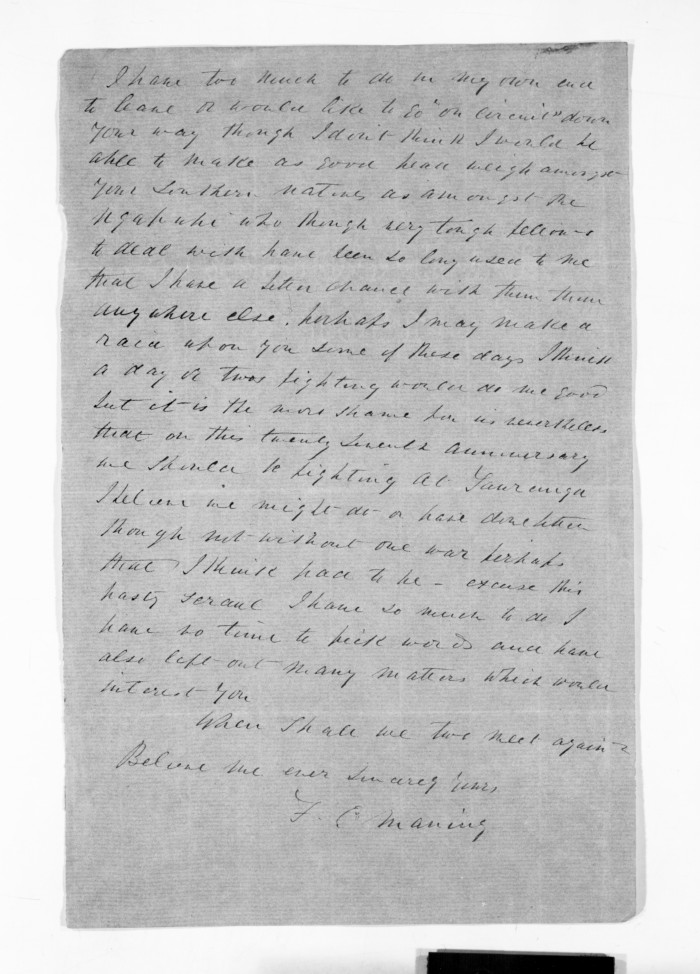 I have too much to do in my own end
to leave or would like to go "on circuit" down
your way though I dont think I would be
able to make as good head weigh amongst
your Southern natives as amongst the
Ngapuhi who though very tough fellows
to deal with have been so long used to me
that I have a better chance with them then
anywhere else. perhaps I may make a
raid upon you some of these days I think
a day or twos fighting would do me good
but it is the more shame for us nevertheless
that on this twenty seventh anniversary
we should be fighting at Tauranga
I believe we might do or have done better
though not without one war perhaps
that I think had to be - excuse this
hasty scrawl I have so much to do I
have no time to pick words and have
also left out many matters which would
interest you
When shall we two meet again -
Believe me ever sincerely yours
F. E. Maning